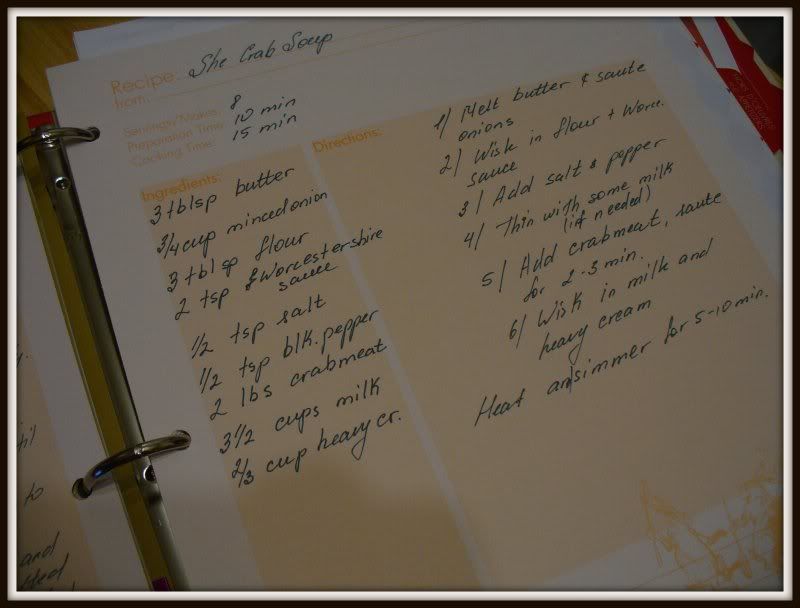 Recipe: She Crab Soup
from:
Servings/Makes: 8
Preparation Time: 10 min
Cooking Time: 15 min
Ingredients:
3 tblsp butter
3/4 cup minced onion
3 tblsp flour
2 tsp Worcestershire
sauce
1/2 tsp salt
1/2 tsp blk. pepper
2 lbs crabmeat
3 1/2 cups milk
2/3 cup heavy cr.
Directions:
1/ Melt butter & saute
onions
2/ Wisk in flour + Worc.
sauce
3/ Add salt & pepper
4/ Thin with some milk
(if needed)
5/ Add crabmeat, saute
for 2-3 min.
6/ Wisk in milk and
heavy cream
Heat an simmer for 5-10 min.
to
and